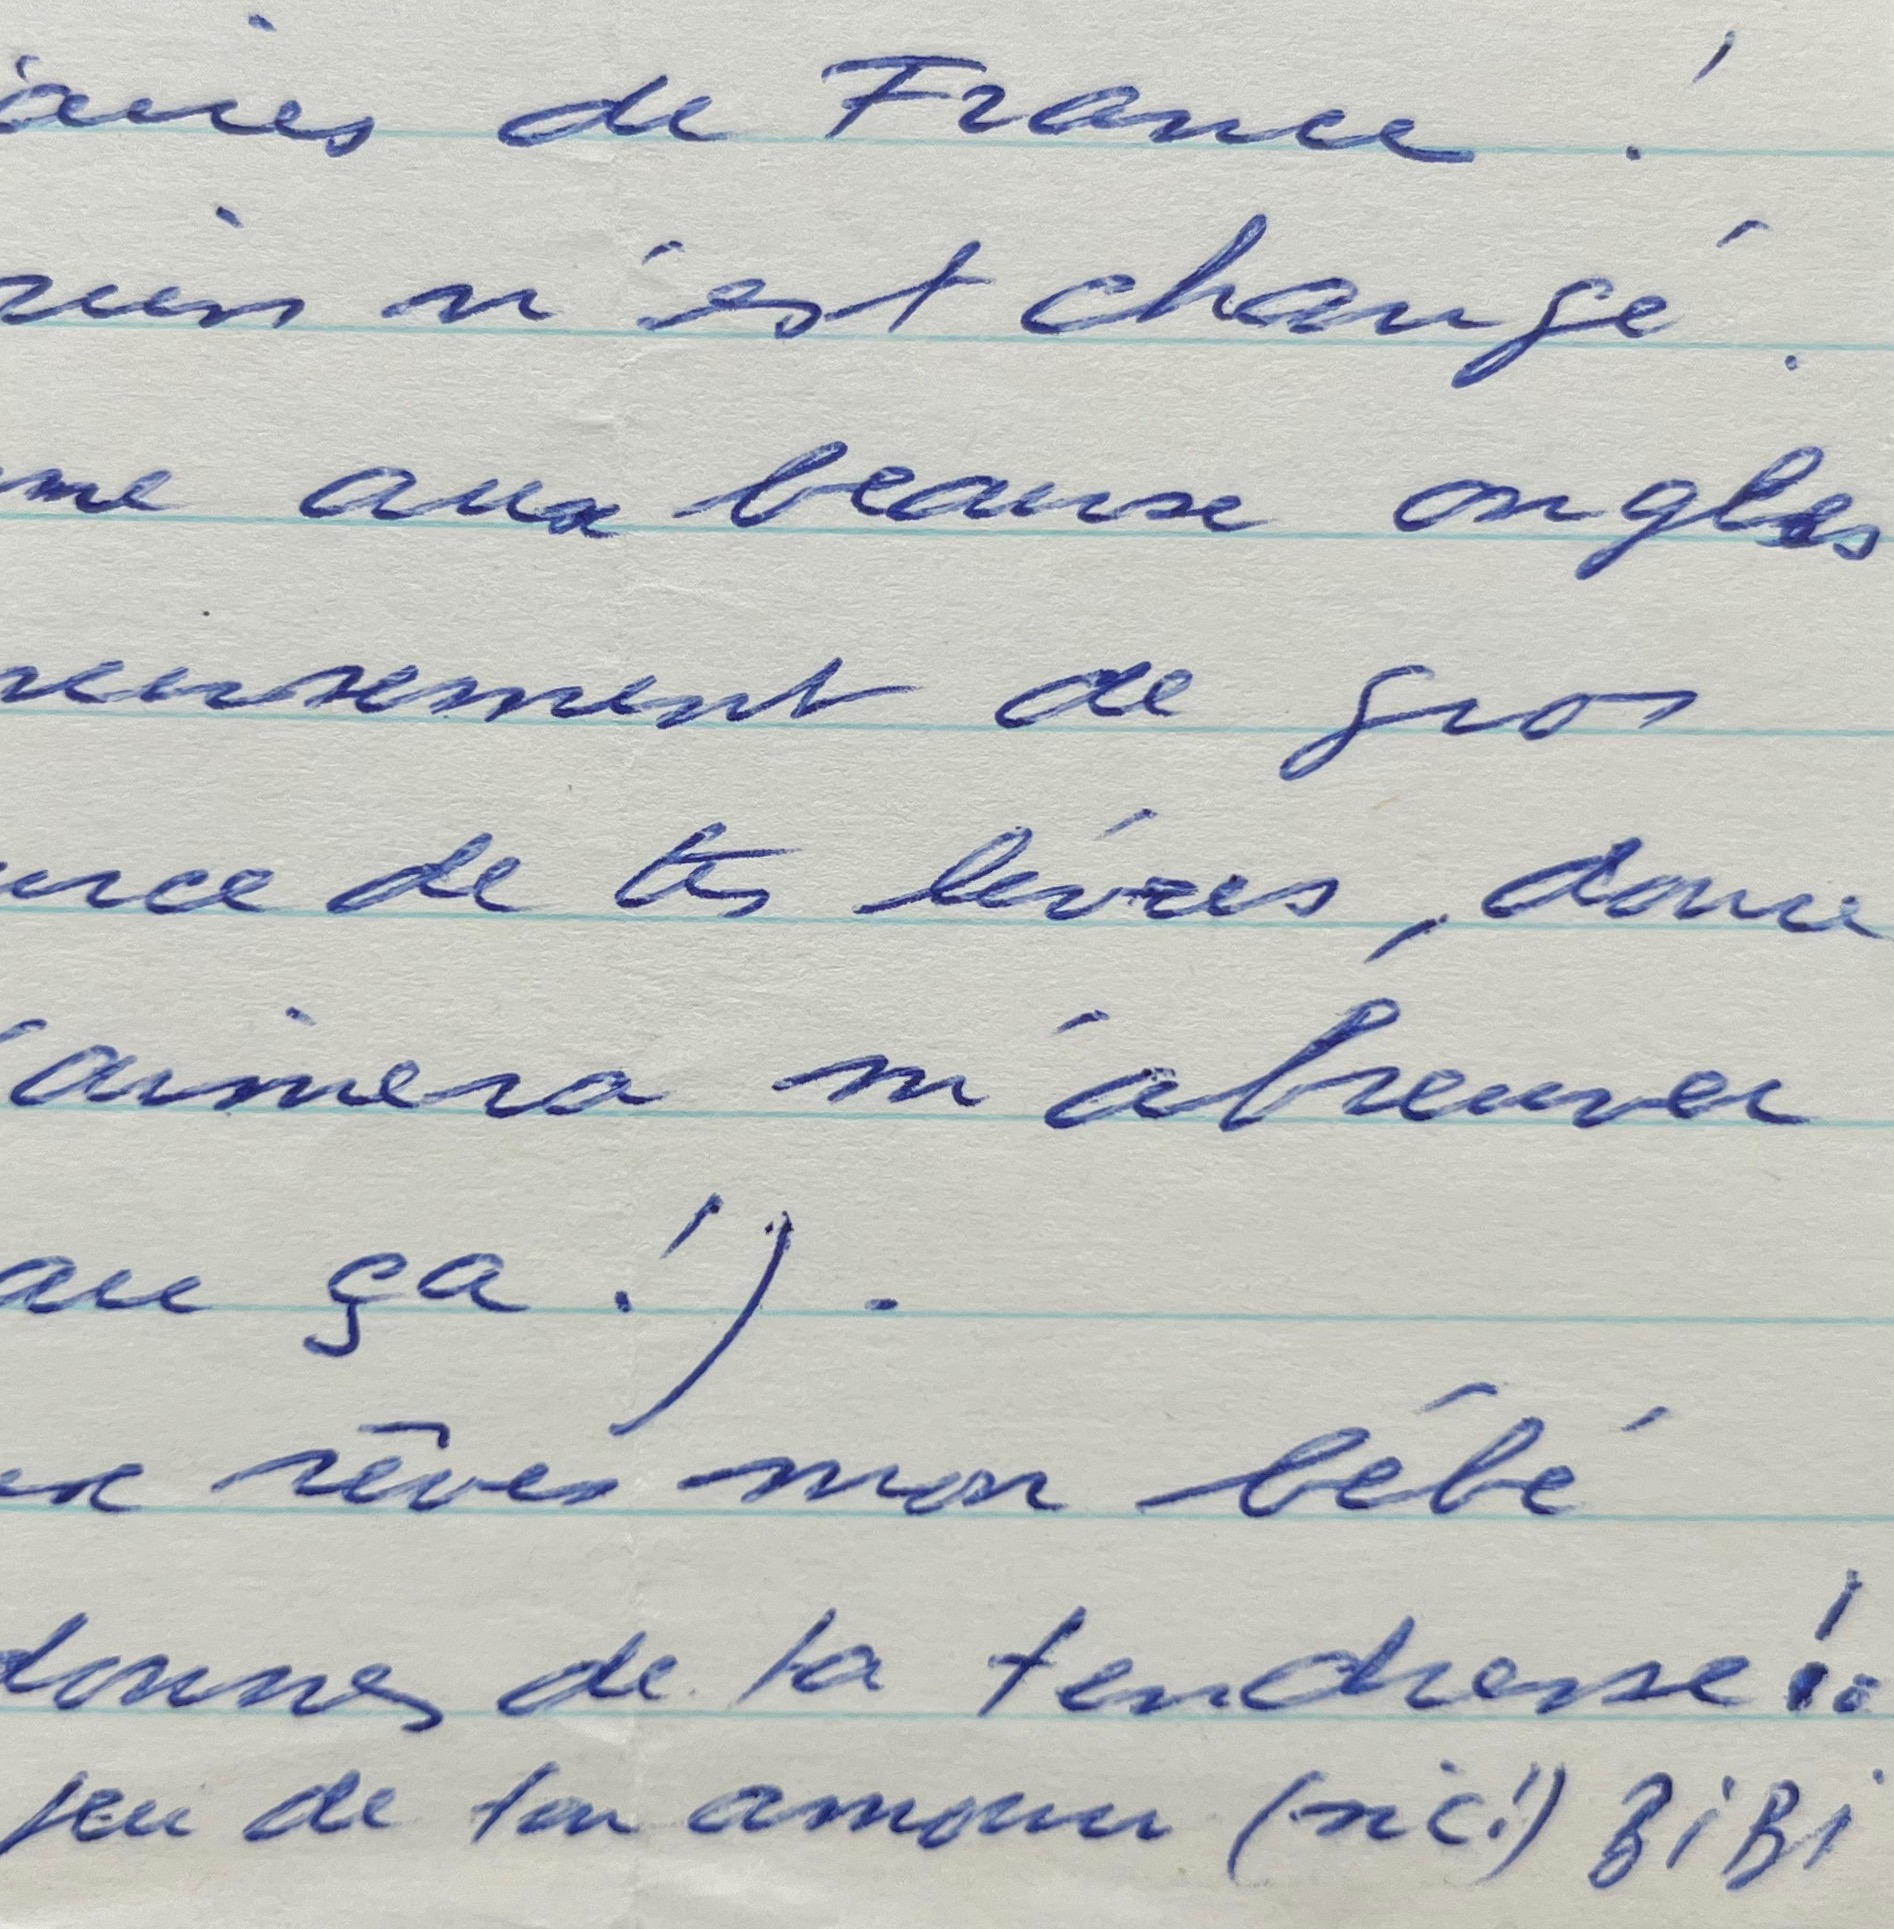 aires de France !
rien n'est changé.
me aux beaux ongles
reusement de gros
urce de tes lèvres, douce
'aimera m'abreuver
au ça !).
ux rêves mon bébé
donnes de ta tendresse !.
feu de ton amour (sic!) BiBi